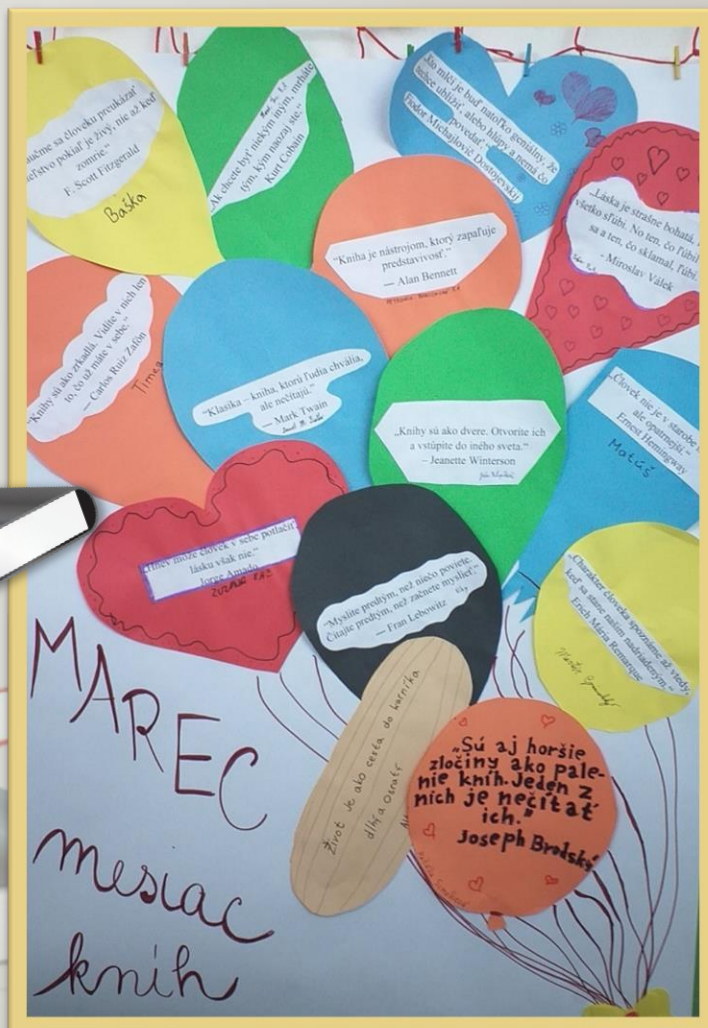 učme sa človeku preukázať
teľstvo pokiaľ je živý, nie až keď
zomrie."
F. Scott Fitzgerald
Baška
„Ak chcete byť niekým iným, mrháte
tým, kým naozaj ste."
Kurt Cobain
„Kto mlčí je buď natoľko geniálny, že
nechce ublížiť, alebo hlúpy a nemá čo
povedať."
Fiodor Michajlovič Dostojevskij
„Láska je strašne bohatá,
všetko sľúbi. No ten, čo ľúbil
sa a ten, čo sklamal, ľúbi.
- Miroslav Válek
"Kniha je nástrojom, ktorý zapaľuje
predstavivosť."
— Alan Bennett
"Knihy sú ako zrkadlá. Vidíte v nich len
to, čo už máte v sebe."
— Carlos Ruiz Zafón
Timea
"Klasika – kniha, ktorú ľudia chvália,
ale nečítajú."
— Mark Twain
„Knihy sú ako dvere. Otvoríte ich
a vstúpite do iného sveta."
– Jeanette Winterson
„Človek nie je v starobe
ale opatrnejší."
Ernest Hemingway
Matúš
Hnev može človek v sebe potlačiť
lásku však nie."
Jorge Amado
"Myslite predtým, než niečo poviete.
Čítajte predtým, než začnete myslieť."
— Fran Lebowitz
„Charakter človeka spoznáme až vtedy,
keď sa stane našim nadriadeným."
Erich Maria Remarque
Život je ako cesta do kurníka
dlhý a
„Sú aj horšie
zločiny ako pále-
nie kníh. Jeden z
nich je nečítať
ich."
Joseph Brodský
MAREC
mesiac
kníh